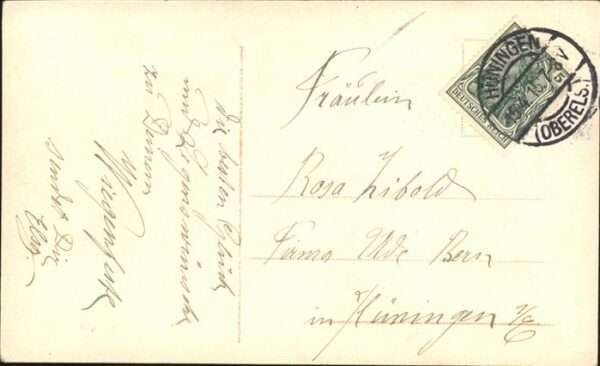 Die besten Glück
und Segenswünsche
zu Deinem
Wiegenfeste
sendet Dir
HÜNINGEN
(OBERELS.)
DEUTSCHES REICH
Fräulein
Rosa Zibold
Firma
in Hüningen i/E